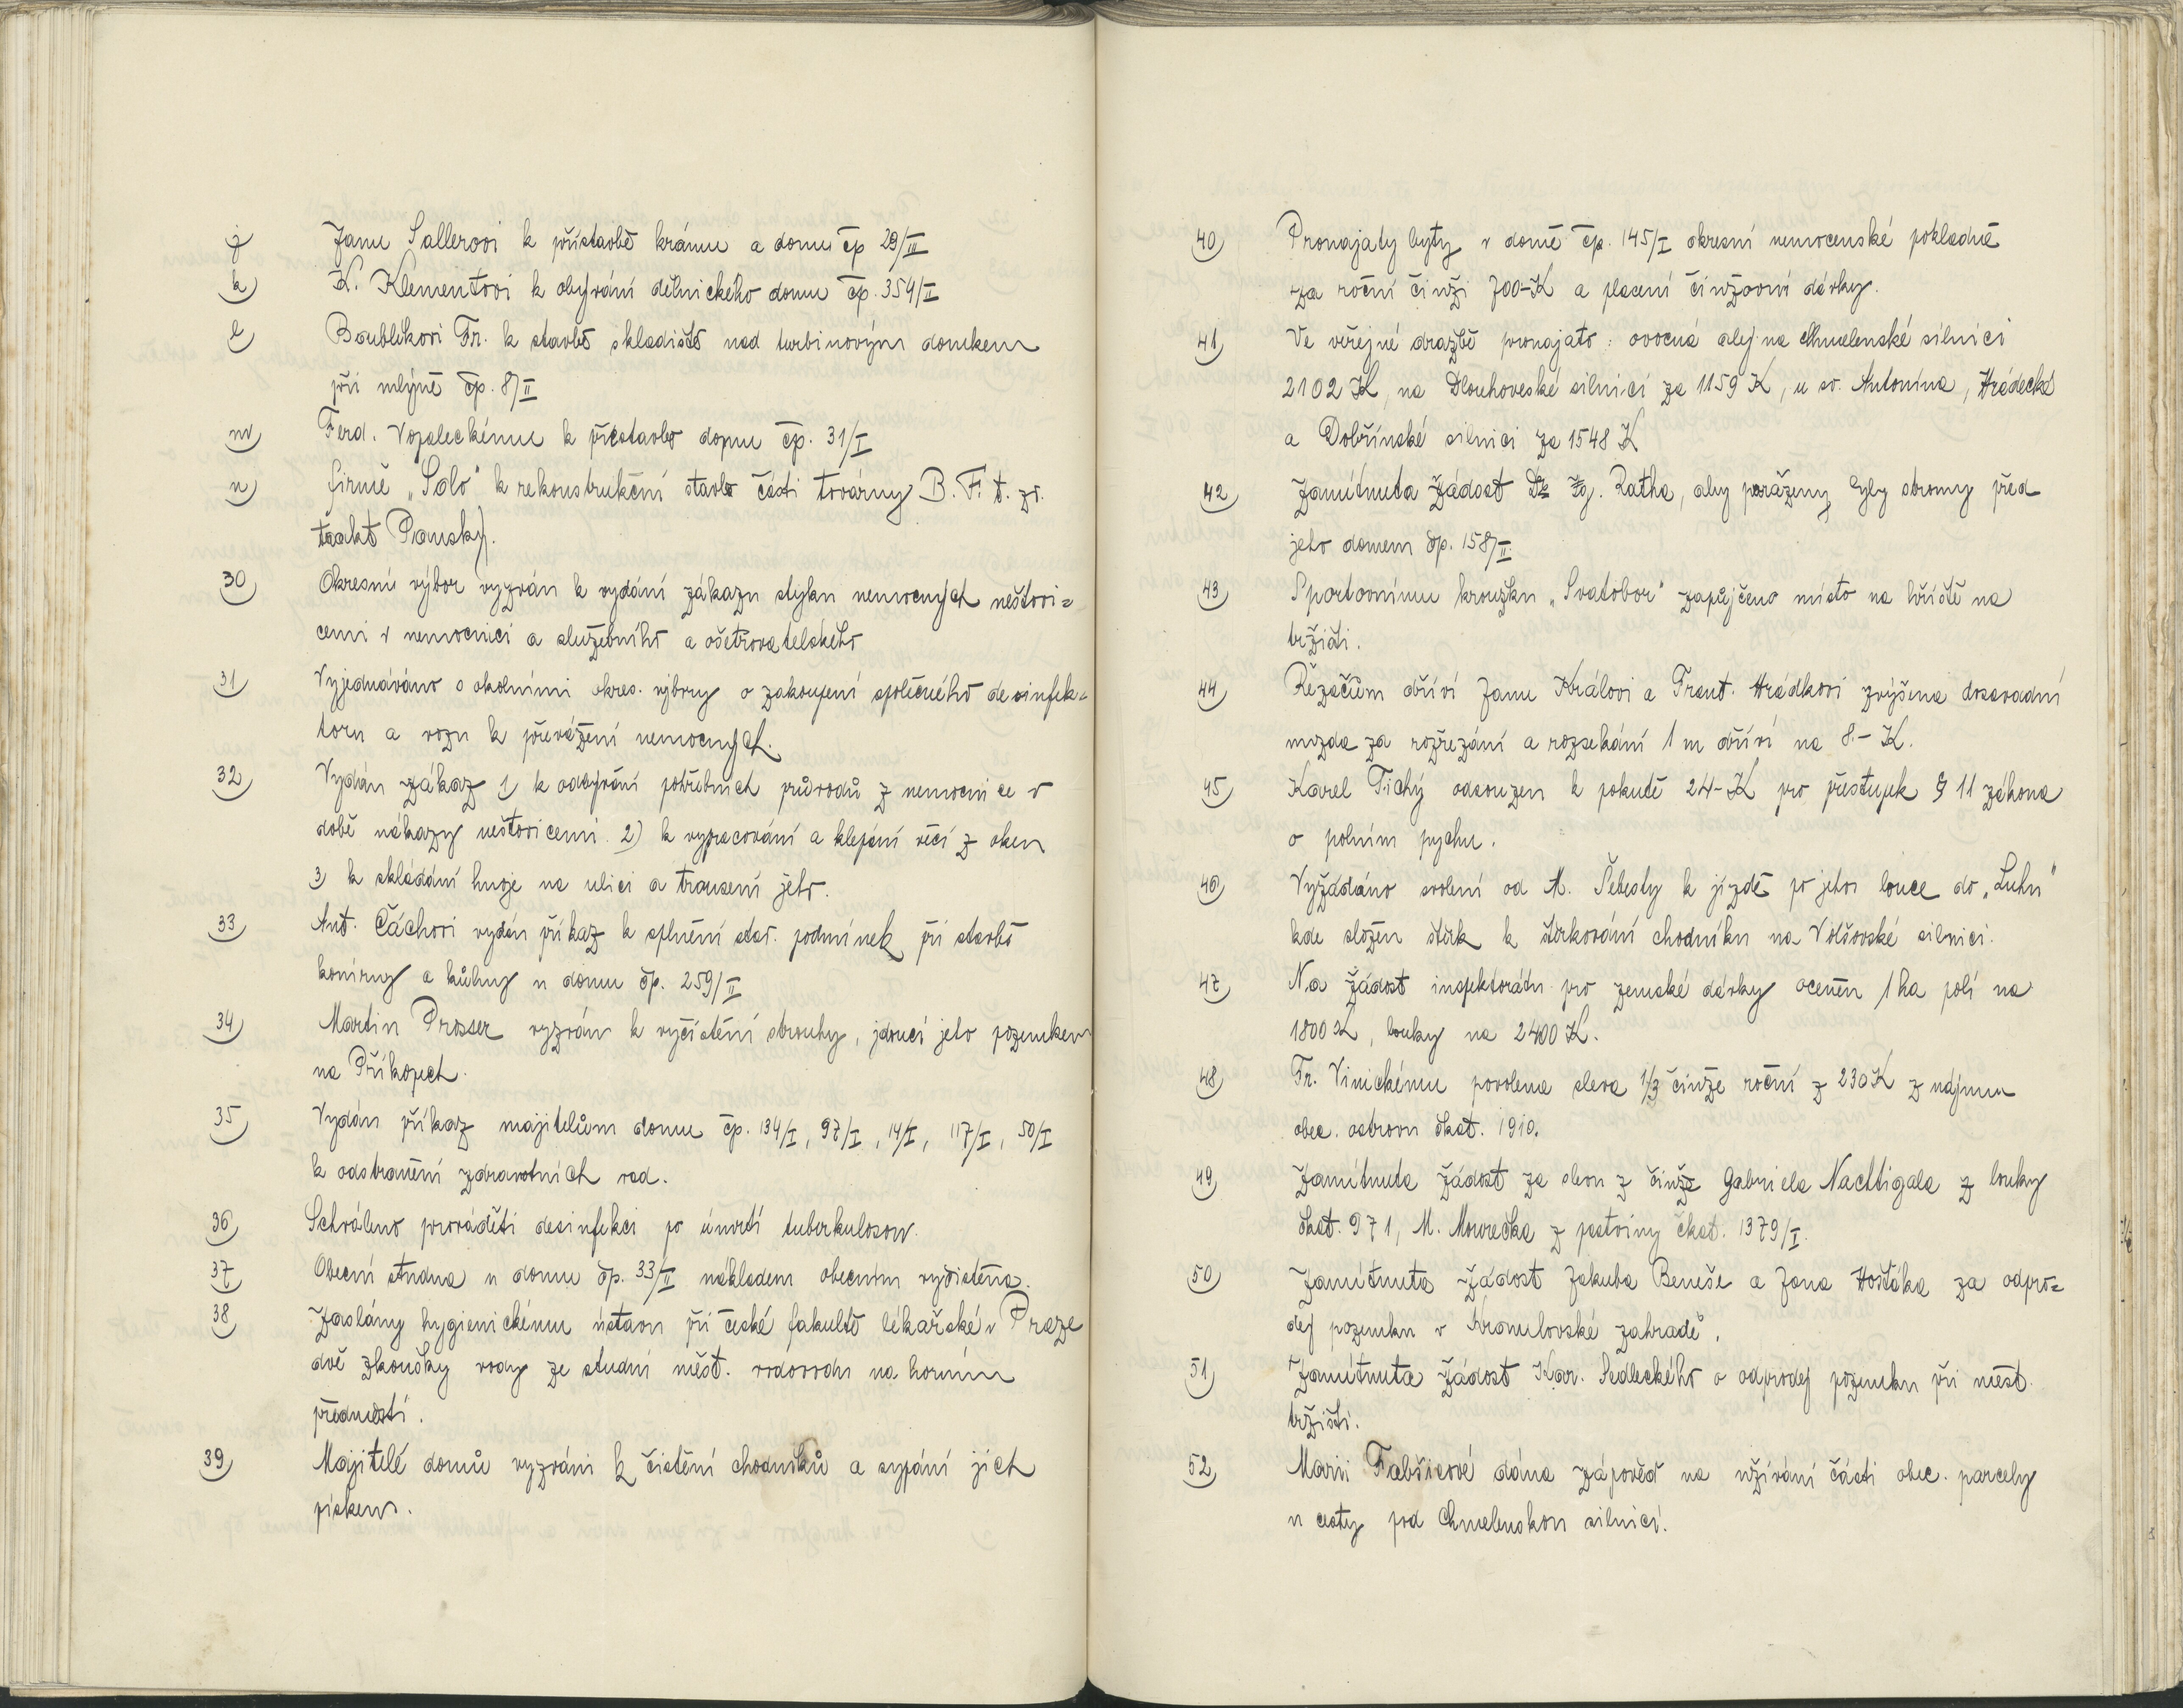 j) Janu Sallerovi k přístavbě krámu a domu čp 29/III
k) K. Klementovi k obývání dělnického domu čp. 354/I
l) Boublíkovi Fr. k stavbě skladiště nad turbinovým domkem
při mlýně čp. 8/II
m) Ferd. Vopaleckému k přestavbě domu čp. 31/I
n) firmě „Solo" k rekonstrukční stavbě části továrny B. F. t. zv.
trakt Pauský).
30) Okresní výbor vyzván k vydání zákazu styku nemocných neštovi=
cemi v nemocnici a služebního a ošetřovatelského
31) Vyjednáváno s okolními okres. výbory o zakoupení společného desinfek=
toru a vozu k převážení nemocných.
32) Vydán zákaz 1) k odbývání pohřebních průvodů z nemocnice v
době nákazy neštovicemi 2) k vypracování a klepání věcí z oken
3) k skládání hnoje na ulici a trousení jeho.
33) Ant. Čáchovi vydán příkaz k splnění stav. podmínek při stavbě
konírny a kůlny u domu čp. 259/II
34) Martin Prosser vyzván k vyčistění strouhy, jdoucí jeho pozemkem
na Příkopech.
35) Vydán příkaz majitelům domu čp. 134/I, 97/I, 14/I, 117/I, 50/I
k odstranění zdravotních vad.
36) Schváleno prováděti desinfekci po úmrtí tuberkulosou.
37) Obecní studna u domu čp. 33/II nákladem obecním vyčistěna.
38) Zaslány hygienickému ústavu při české fakultě lékařské v Praze
dvě zkoušky vody ze studní měst. vodovodu na horním
předměstí.
39) Majitelé domů vyzváni k čistění chodníků a sypání jich
pískem.
40) Pronajaty byty v domě čp. 145/I okresní nemocenské pokladně
za roční činži 700-K a placení činžovní dávky.
41) Ve veřejné dražbě pronajato: ovocná alej na Chmelenské silnici
2102 K, na Dlouhoveské silnici za 1159 K, u sv. Antonína, Hrádecké
a Dobřínské silnici za 1548 K
42) Zamítnuta žádost Ig. Ratha, aby poraženy byly stromy před
jeho domem čp. 158/II.
43) Sportovnímu kroužku „Svatobor" zapůjčeno místo na hřiště na
tržišti.
44) Řezačům dříví Janu Královi a Frant. Hrádkovi zvýšena dosavadní
mzda za rozřezání a rozsekání 1 m dříví na 8.- K.
45) Karel Tichý odsouzen k pokutě 24-K pro přestupek § 11 zákona
o polním pychu.
46) Vyžádáno svolení od M. Šebesty k jízdě po jeho louce do „Luhu"
kde složen štěrk k štěrkování chodníku na Volšovské silnici.
47) Na žádost inspektorátu pro zemské dávky oceněn 1 ha polí na
1800 K, louky na 2400 K.
48) Fr. Vinickému povolena sleva 1/3 činže roční z 230 K z nájmu
obec. ostrovu čkat. 1910.
49) Zamítnuta žádost za slevu z činže Gabriela Nachtigala z louky
čkat. 971, M. Mourečka z pastviny čkat. 1379/I.
50) Zamítnuta žádost Jakuba Beneše a Jana Hošťáka za odpro=
dej pozemku v Kronulovské zahradě.
51) Zamítnuta žádost Kar. Sedleckého o odprodej pozemku při měst.
tržišti.
52) Marii Fabšicové dána zápověď na užívání části obec. parcely
u cesty pod Chmelenskou silnicí.